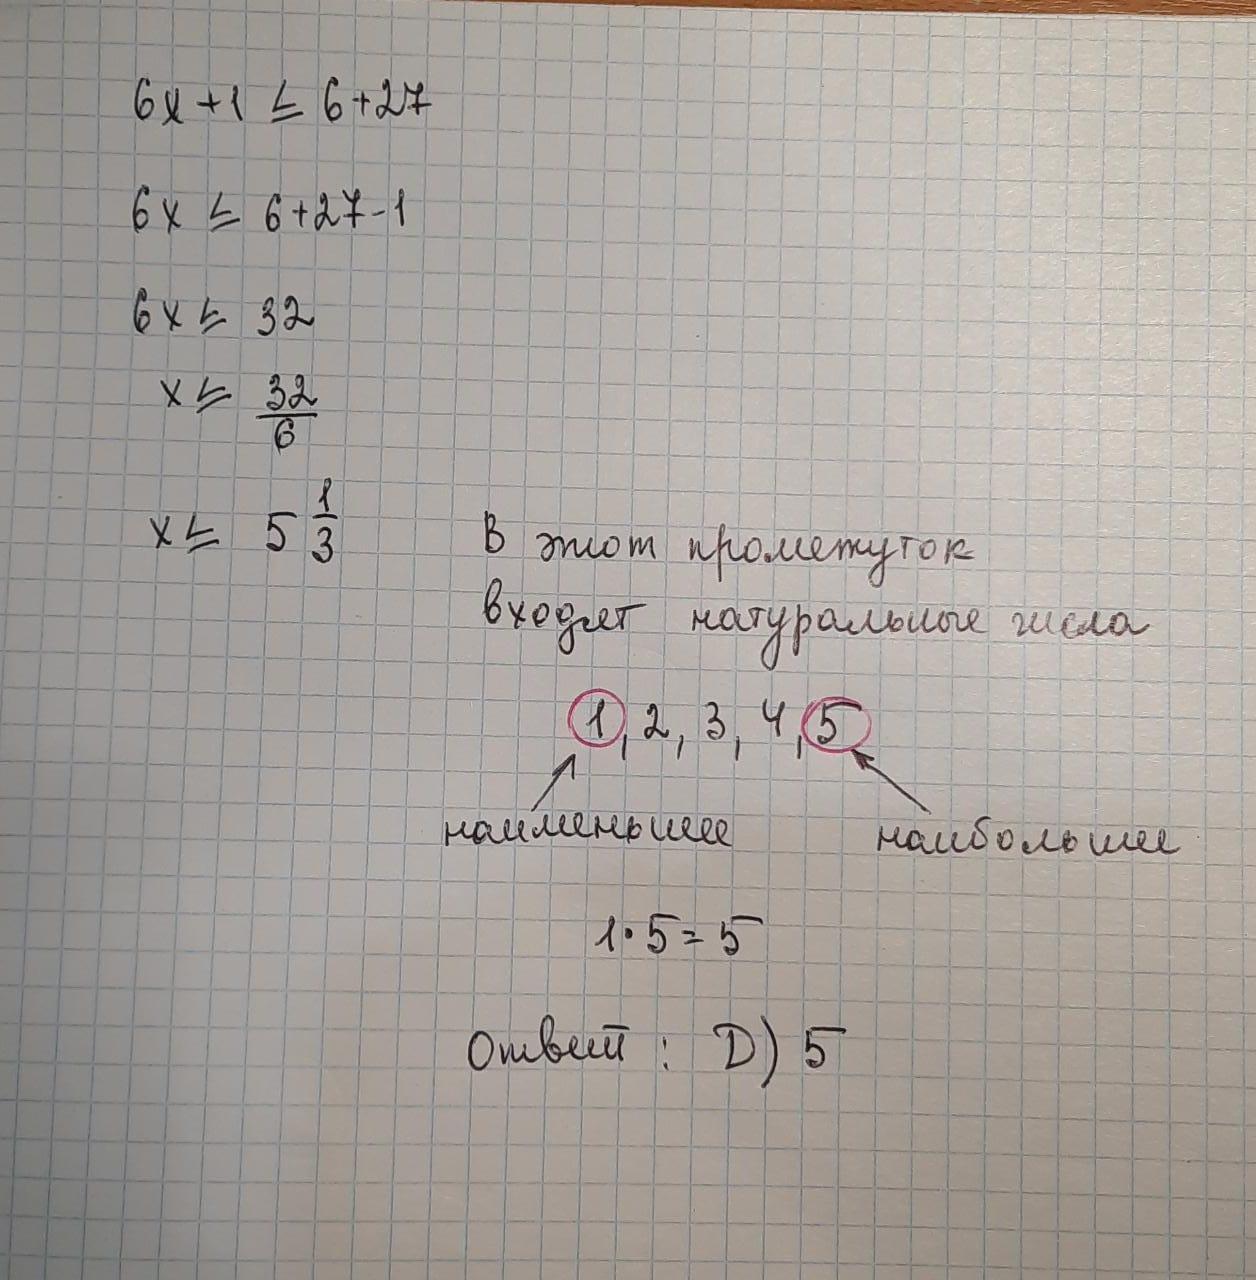 6x+1 ≤ 6+27
6x ≤ 6+27-1
6x ≤ 32
x ≤ 32/6
x ≤ 5 1/3
В этот промежуток
входят натуральные числа
1, 2, 3, 4, 5
наименьшее наибольшее
1·5=5
Ответ: D) 5